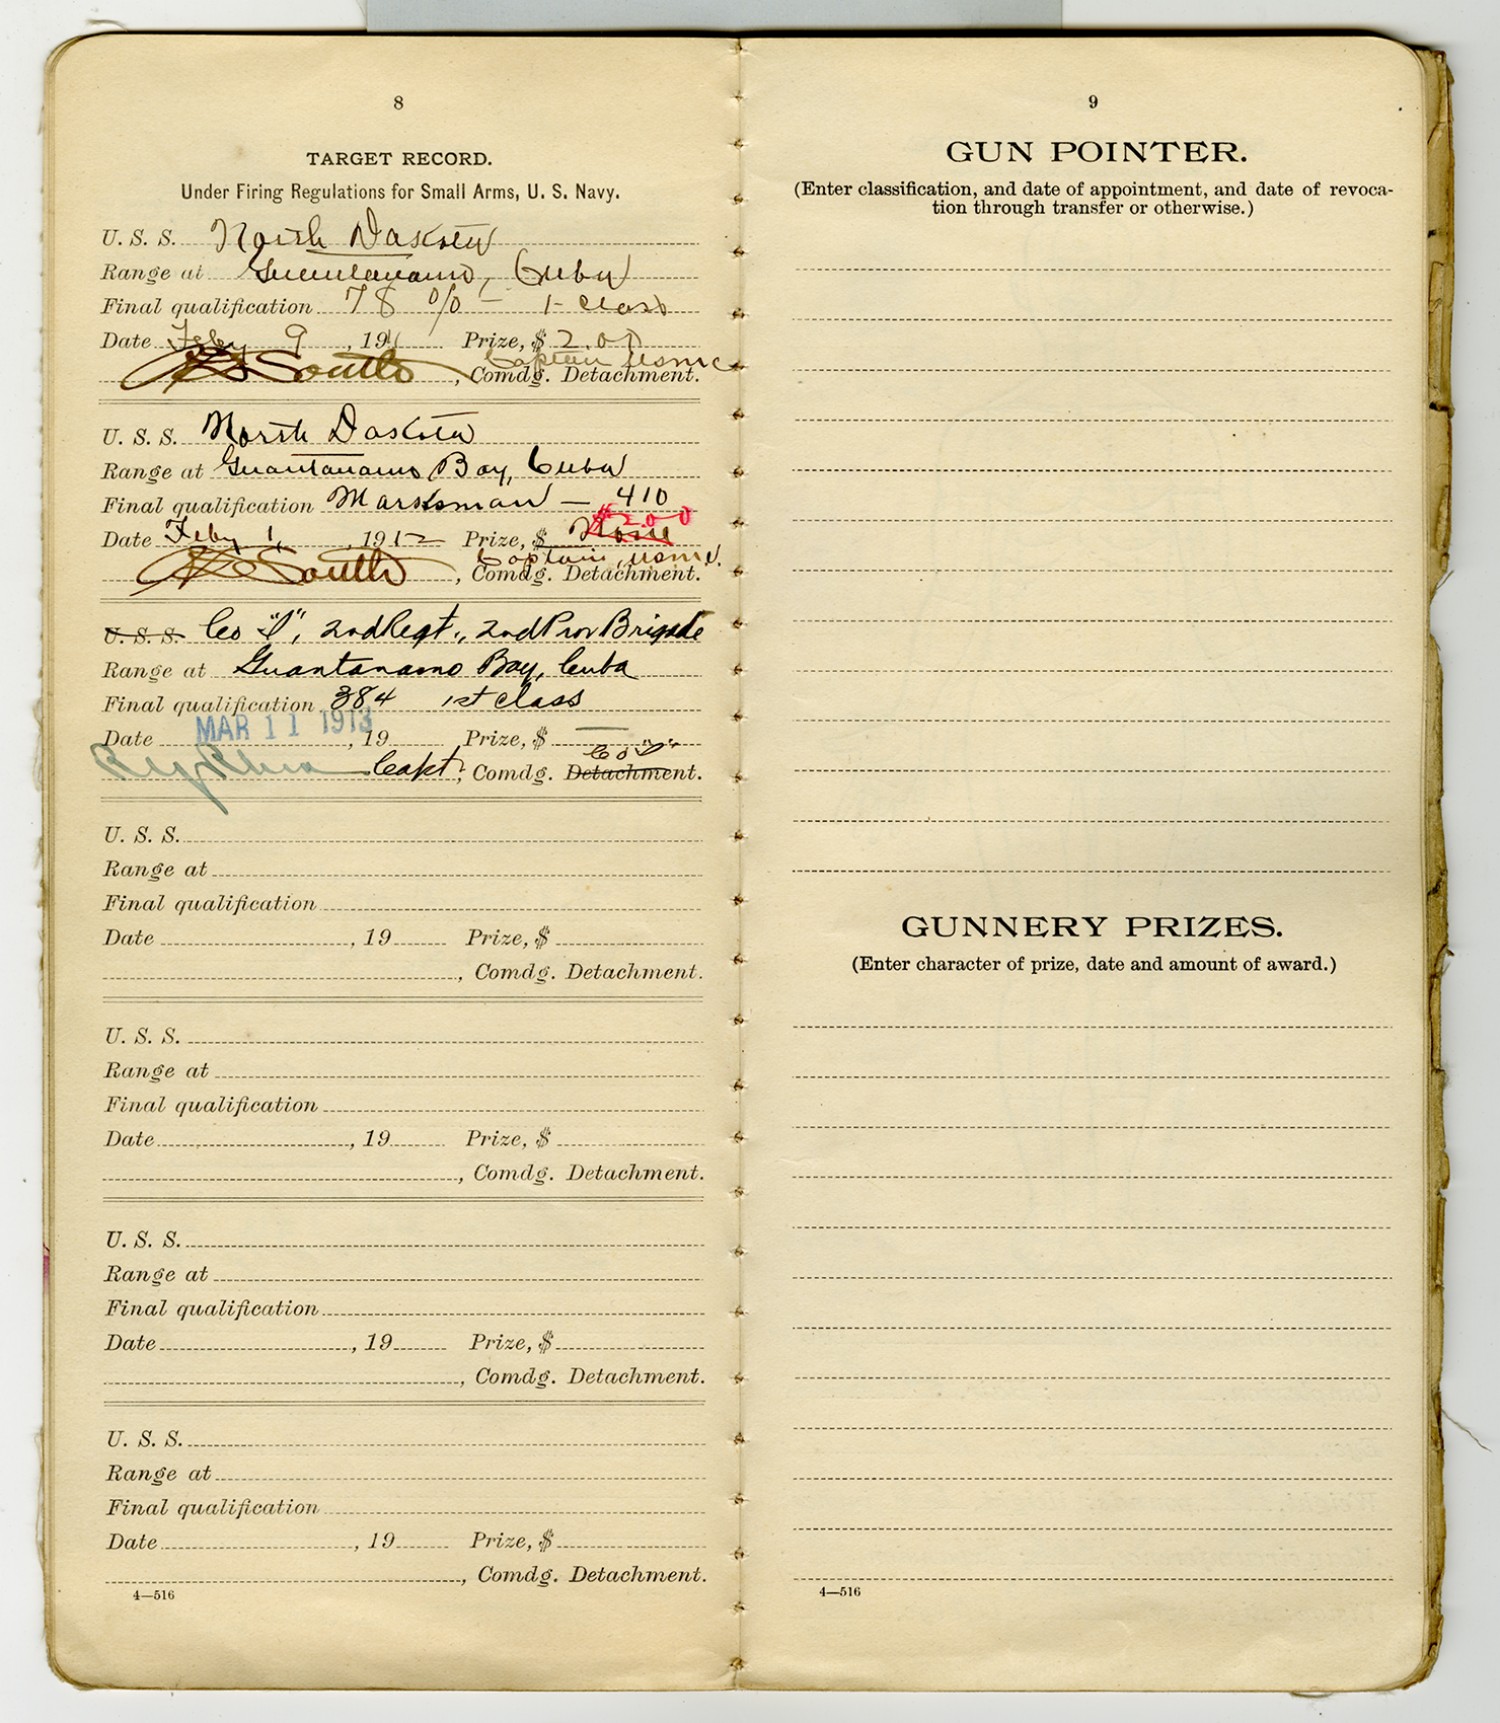 8
TARGET RECORD.
Under Firing Regulations for Small Arms, U. S. Navy.
U. S. S. North Dakota
Range at Guantanamo, Cuba
Final qualification 78 % – 1- Class
Date Feby 9, 191 Prize, $ 2.00
South Captain USMC, Comdg. Detachment.
U. S. S. North Dakota
Range at Guantanamo Bay, Cuba
Final qualification Marksman — 410
Date Feby 1, 1912 Prize, $ None $2.00
South Captain, USMC, Comdg. Detachment.
U. S. S. Co "I", 2nd Regt., 2nd Prov Brigade
Range at Guantanamo Bay, Cuba
Final qualification 384 1st Class
Date MAR 11 1913, 19 Prize, $ —
Capt, Comdg. Detachment. Co "I"
U. S. S.
Range at
Final qualification
Date , 19 Prize, $
, Comdg. Detachment.
U. S. S.
Range at
Final qualification
Date , 19 Prize, $
, Comdg. Detachment.
U. S. S.
Range at
Final qualification
Date , 19 Prize, $
, Comdg. Detachment.
U. S. S.
Range at
Final qualification
Date , 19 Prize, $
, Comdg. Detachment.
4—516
9
GUN POINTER.
(Enter classification, and date of appointment, and date of revoca-
tion through transfer or otherwise.)
GUNNERY PRIZES.
(Enter character of prize, date and amount of award.)
4—516